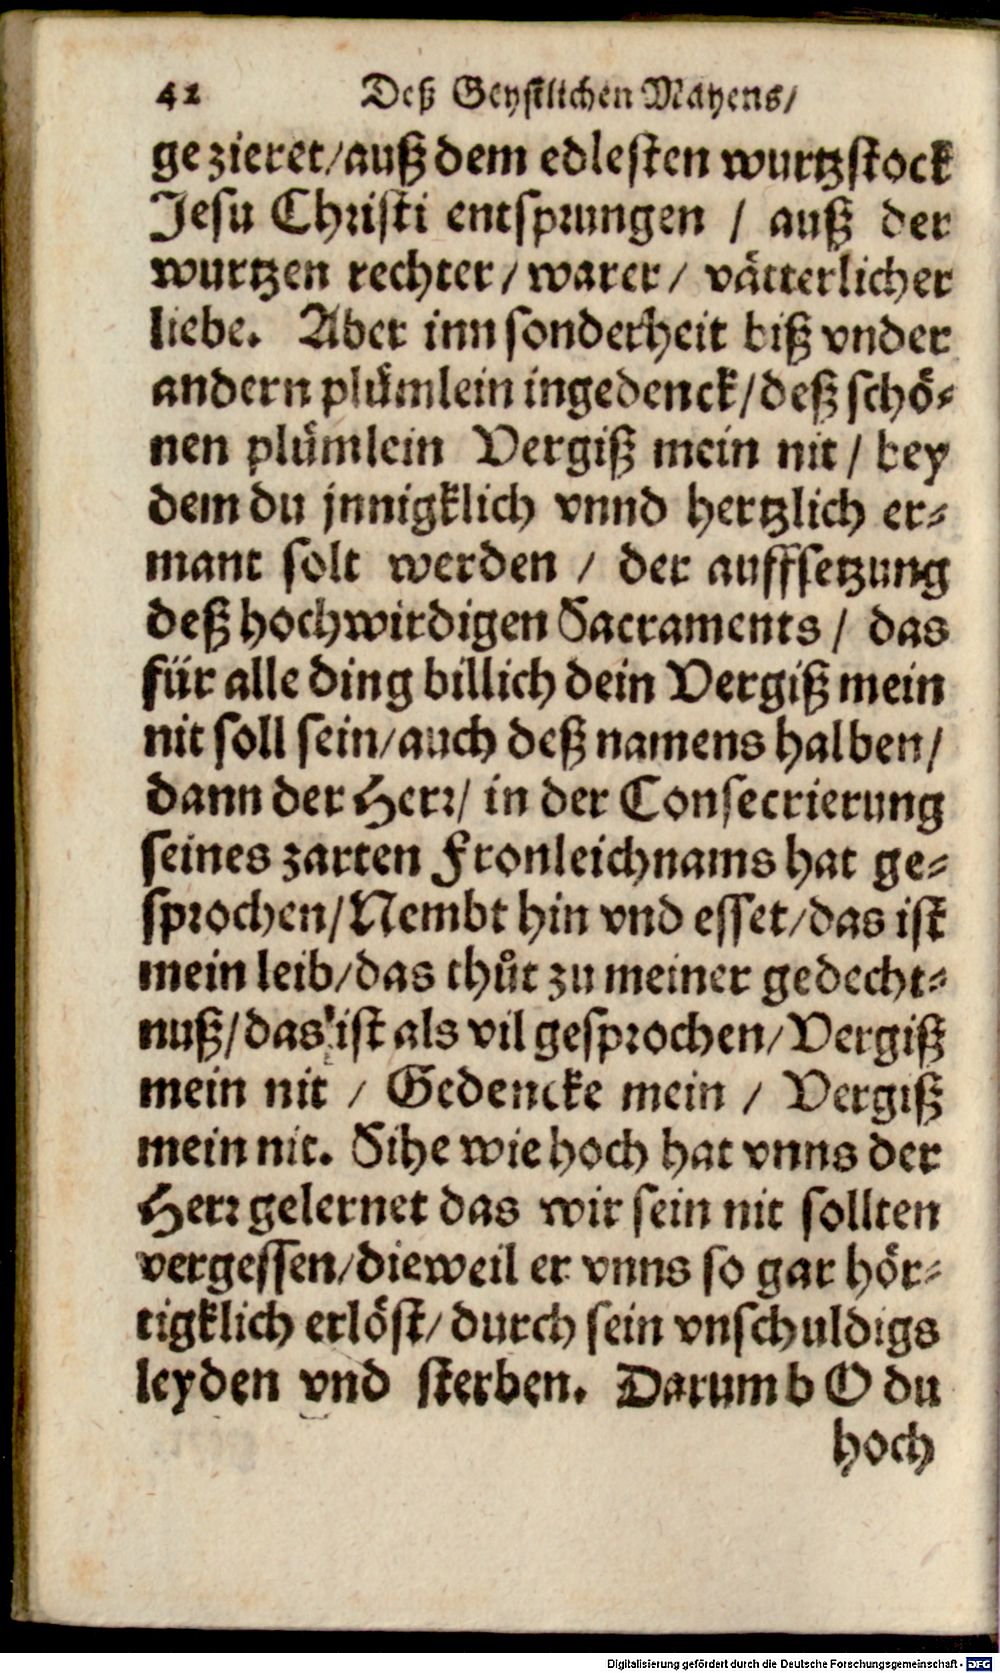 42 Deß Geystlichen Mayens/
gezieret/auß dem edlesten wurtzstock
Jesu Christi entsprungen / auß der
wurtzen rechter/ warer/ vätterlicher
liebe. Aber inn sonderheit biß vnder
andern plümlein ingedenck/deß schö-
nen plümlein Vergiß mein nit / bey
dem du jnnigklich vnnd hertzlich er-
mant solt werden / der auffsetzung
deß hochwirdigen Sacraments / das
für alle ding billich dein Vergiß mein
nit soll sein/auch deß namens halben/
dann der Herr/ in der Consecrierung
seines zarten Fronleichnams hat ge-
sprochen/Nembt hin vnd esset/das ist
mein leib/das thůt zu meiner gedecht-
nuß/das ist als vil gesprochen/Vergiß
mein nit / Gedencke mein / Vergiß
mein nit. Sihe wie hoch hat vnns der
Herr gelernet das wir sein nit sollten
vergessen/dieweil er vnns so gar hör-
tigklich erlöst/durch sein vnschuldigs
leyden vnd sterben. Darumb O du
hoch
Digitalisierung gefördert durch die Deutsche Forschungsgemeinschaft - DFG